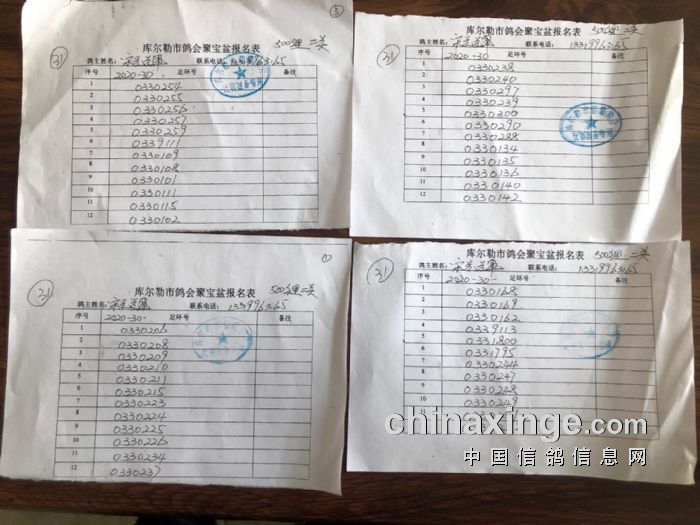 ③
库尔勒市鸽会聚宝盆报名表 500哩 二关
31 鸽主姓名： 联系电话：
序号 2020-30- 足环号 备注
1 0330254
2 0330255
3 0330256
4 0330257
5 0330259
6 0339111
7 0330109
8 0330108
9 0330101
10 0330111
11 0330115
12 0330102
库尔勒市鸽会聚宝盆报名表 500哩 二关
31 鸽主姓名： 联系电话： 13319963165
序号 2020-30 足环号 备注
1 0330238
2 0330240
3 0330297
4 0330239
5 0330300
6 0330290
7 0330288
8 0330134
9 0330135
10 0330136
11 0330140
12 0330142
①
库尔勒市鸽会聚宝盆报名表 500哩 二关
31 鸽主姓名： 联系电话： 13319963165
序号 2020-30- 足环号 备注
1 0330206
2 0330208
3 0330209
4 0330210
5 0330211
6 0330215
7 0330223
8 0330224
9 0330225
10 0330226
11 0330234
12 0330237
库尔勒市鸽会聚宝盆报名表 500哩 二关
31 鸽主姓名： 联系电话： 13319963165
序号 2020-30- 足环号 备注
1 0330168
2 0330169
3 0330162
4 0339113
5 0331800
6 0331795
7 0330244
8 0330247
9 0330248
10 0330249
11
chinaxinge.com
中国信鸽信息网